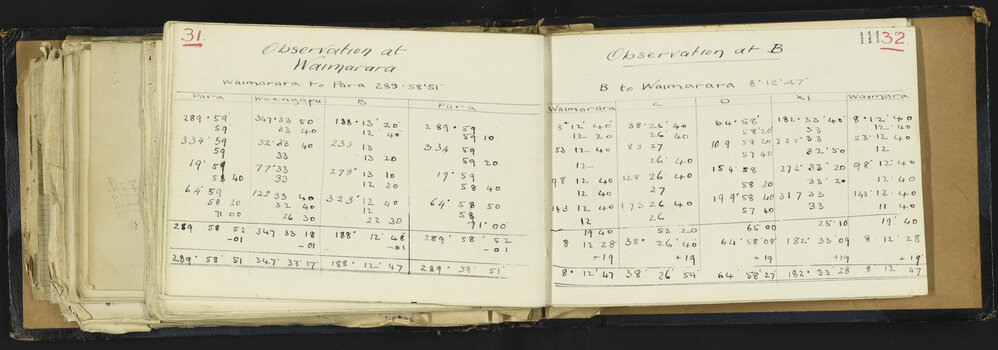 31.
Observation at
Waimarara
Waimarara to Para 289·58'51"
Para Waengapu B Para
289·59 347·33 50 188·13'20 289·59
59 33 40 12·40 59 10
334·59 32·33 40 233 13 334 59
59 33 13 20 59 20
19·59 77·33 278·13 10 19·59
58 40 33 12 20 58 40
64·59 122 33 40 323·12 40 64·58 50
58 20 32 40 12 58
71 00 26 30 22 30 71·00
289 58 52 347 33 18 188° 12' 48 289·58' 52
-01 -01 -01 -01
289·58' 51 347·33'17 188·12'47 289·58' 51
32.
Observation at B
B to Waimarara 8°12'47"
Waimarara C D XI Waimara
8°12' 40 38·26'40 64·58' 182·33'40 8·12'40
12 20 26 40 58'20 33 12·40
53 12·40 83 27 109 58 20 227 33' 53·12·40
12 26 40 57 40 32'50 12
98 12'40 128 26'40 154·58 272 33'20 98·12·40
12 40 27 58 20 33'20 12·40
143 12 40 173 26 40 199 58 40 317 33 143·12·40
12 26 57 40 33 11 40
19 40 53 20 65 00 25·10 19' 40
8·12 28 38°26·40 64·58'08 182·33'09 8·12'28
+19 +19 +19 +19 +19
8·12'47 38·26 59 64 58'27 182·33'28 8 12 47